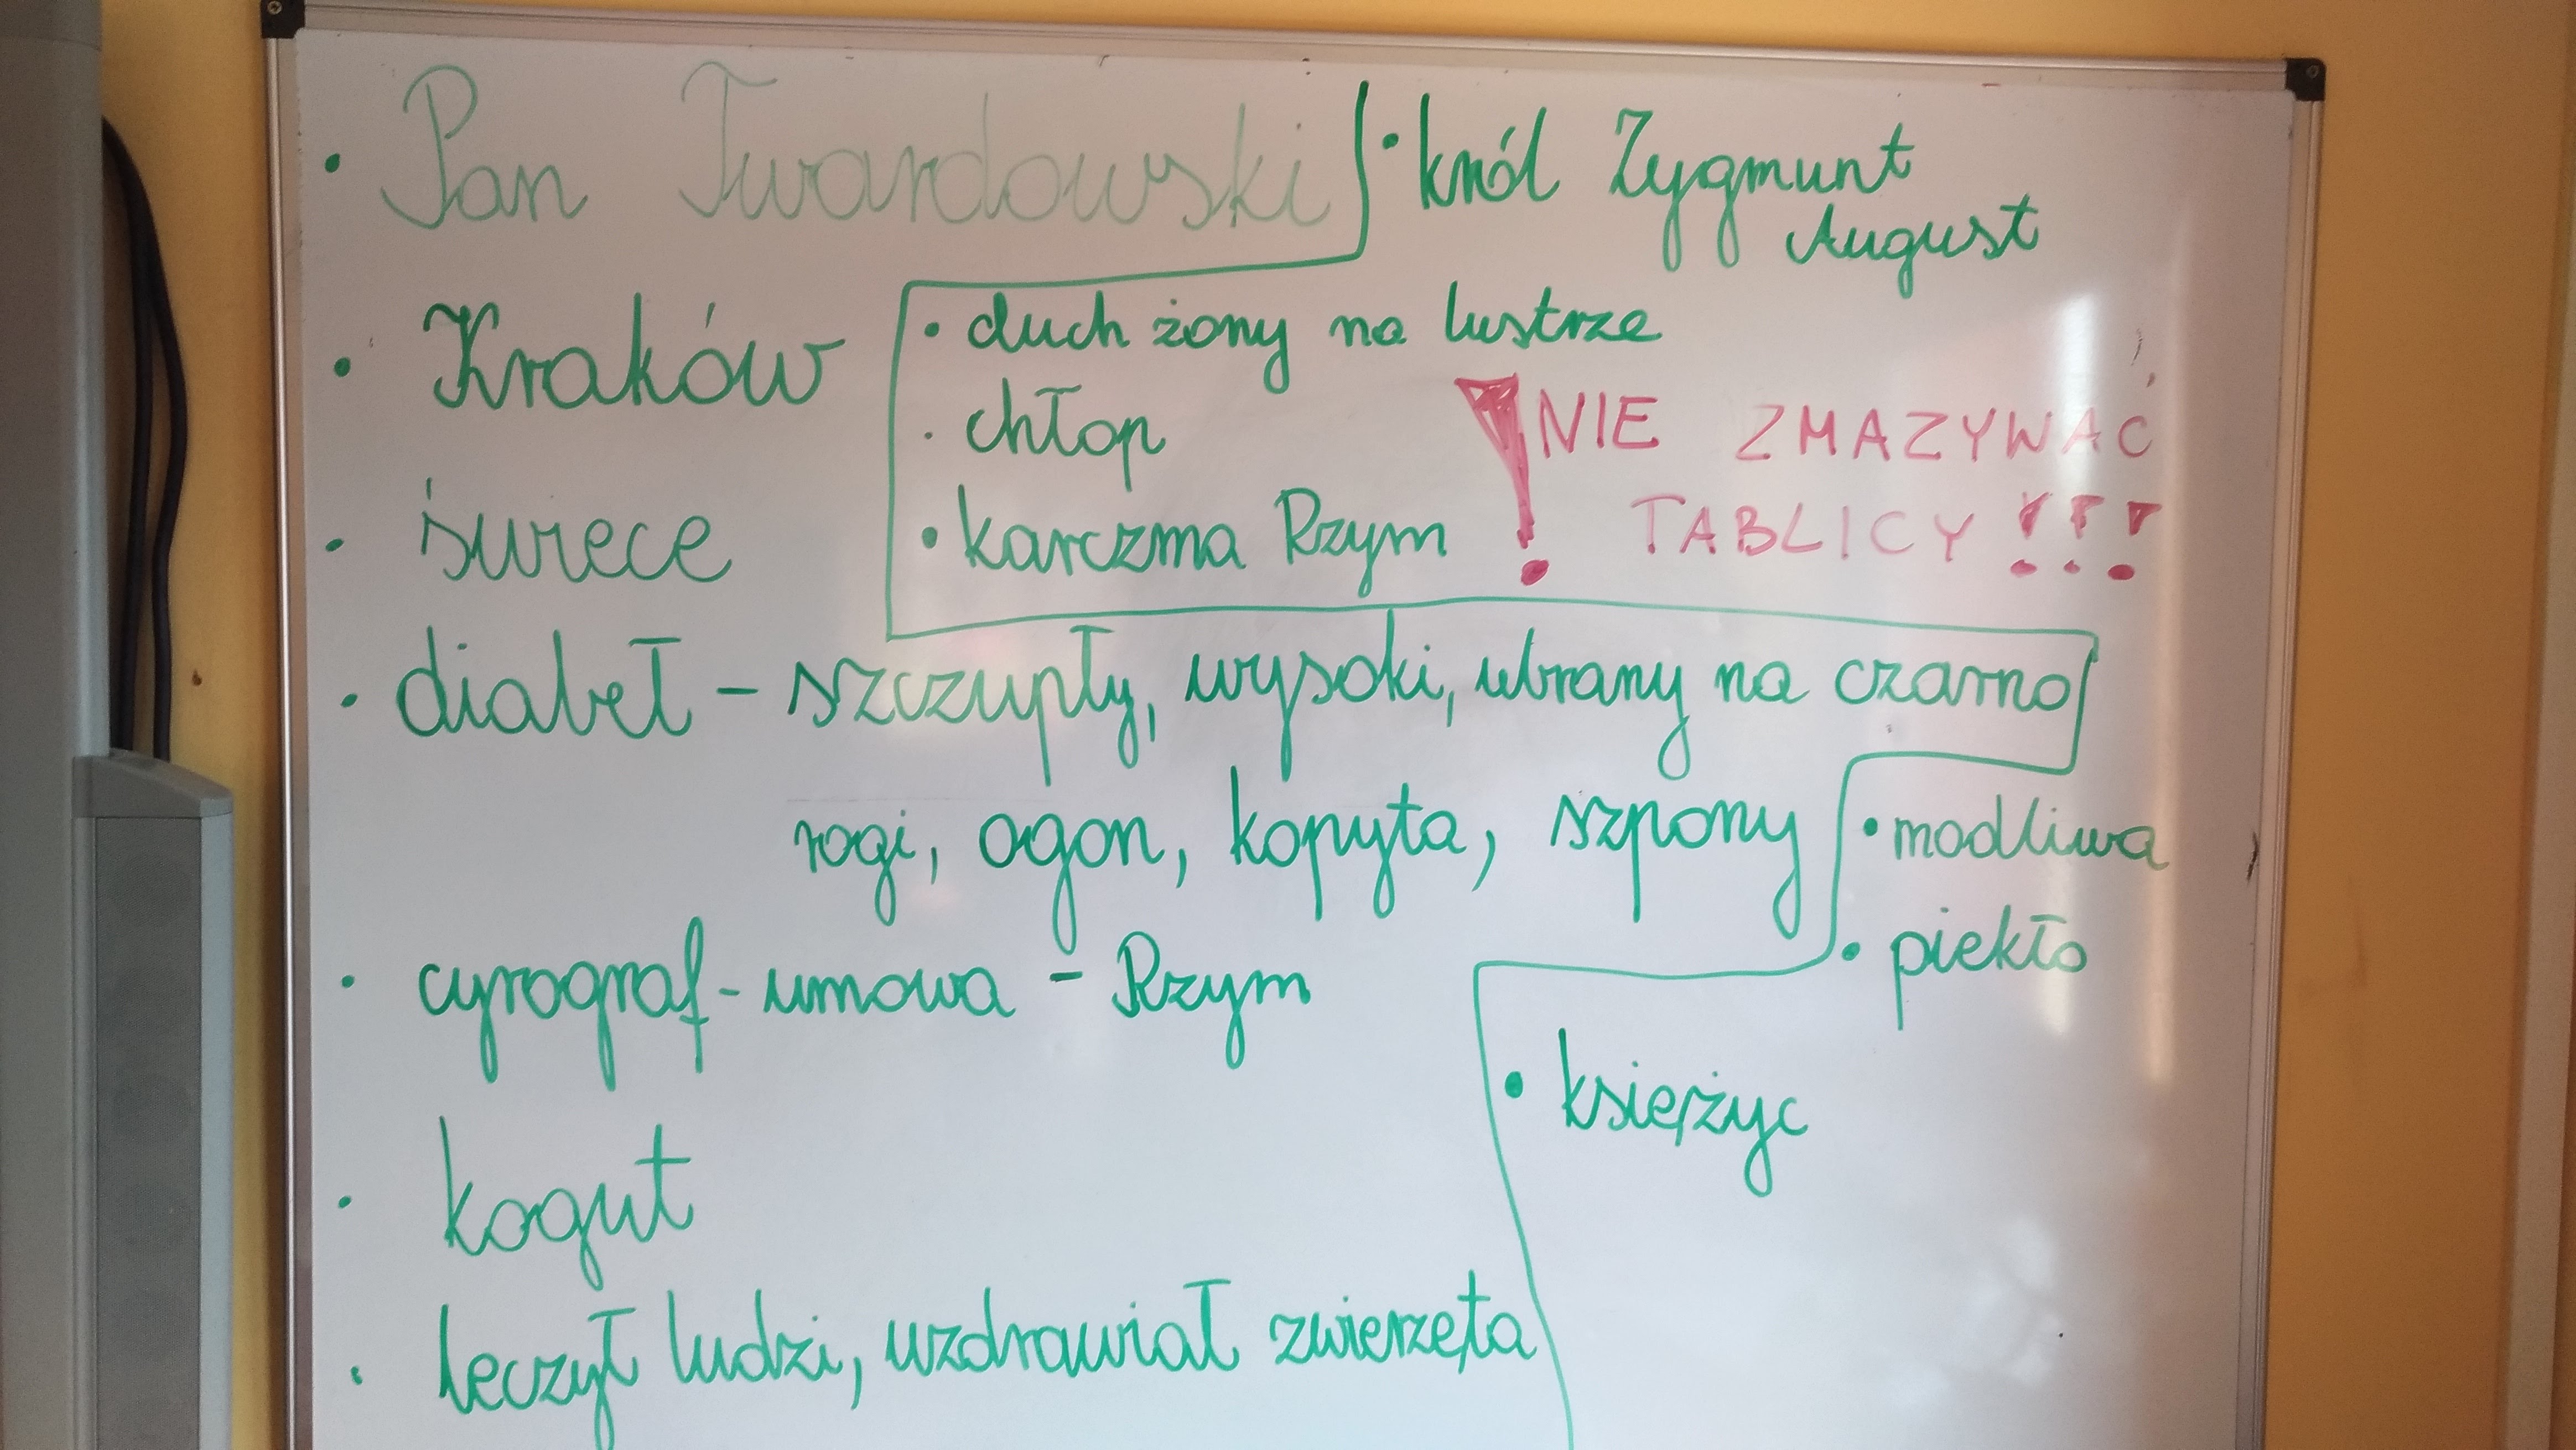 • Pan Twardowski
• Kraków
• świece
• diabeł – szczupły, wysoki, ubrany na czarno
rogi, ogon, kopyta, szpony
• cyrograf - umowa - Rzym
• kogut
• leczył ludzi, uzdrawiał zwierzęta
• król Zygmunt
August
• duch żony na lustrze
• chłop
• karczma Rzym
! NIE ZMAZYWAĆ
TABLICY !!!
• modliwa
• piekło
• księżyc